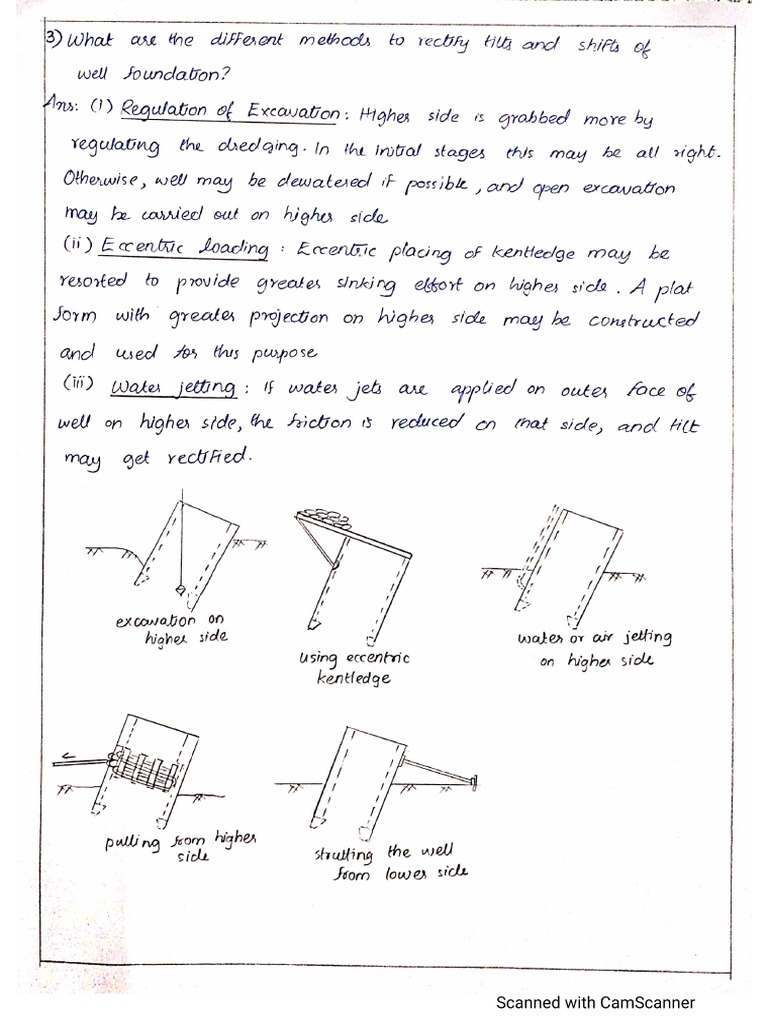 3) What are the different methods to rectify tilts and shifts of
well foundation?
Ans: (i) Regulation of Excavation: Higher side is grabbed more by
regulating the dredging. In the initial stages this may be all right.
Otherwise, well may be dewatered if possible, and open excavation
may be carried out on higher side
(ii) Eccentric loading : Eccentric placing of kentledge may be
resorted to provide greater sinking effort on higher side. A plat
form with greater projection on higher side may be constructed
and used for this purpose
(iii) Water jetting : If water jets are applied on outer face of
well on higher side, the friction is reduced on that side, and tilt
may get rectified.
excavation on
higher side
using eccentric
kentledge
water or air jetting
on higher side
pulling from higher
side
strutting the well
from lower side
Scanned with CamScanner